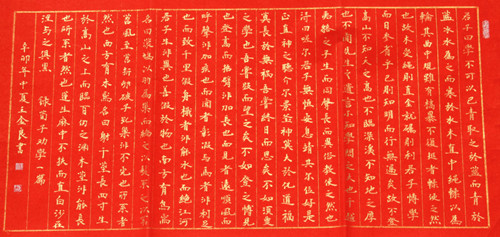 君子曰學不可以已青取之於藍而青於
藍冰水為之而寒於水木直中繩輮以為
輪其曲中規雖有槁暴不復挺者輮使之然
也故木受繩則直金就礪則利君子博學
而日參省乎己則知明而行無過矣故不登
高山不知天之高也不臨深溪不知地之厚
也不聞先王之遺言不知學問之大也干越
夷貉之子生而同聲長而異俗教使之然也
詩曰嗟爾君子無恒安息靖共爾位好是
正直神之聽之介爾景福神莫大於化道福
莫長於無禍吾嘗終日而思矣不如須臾
之學也吾嘗跂而望之矣不如登高之博見
也登高而招臂非加長也而見者遠順風而
呼聲非加疾也而聞者彰假輿馬者非利足
也而致千里假舟檝者非能水也而絕江河
君子生非異也善假於物也南方有鳥焉
名曰蒙鳩以羽為巢而編之以髮繫之以葦
苕風至苕折卵破子死巢非不完也所繫者
然也西方有木焉名曰射干莖長四寸生
於高山之上而臨百仞之淵木莖非能長
也所立者然也蓬生麻中不扶而直白沙在
涅與之俱黑 錄荀子勸學一篇
辛卯年中夏 金良書